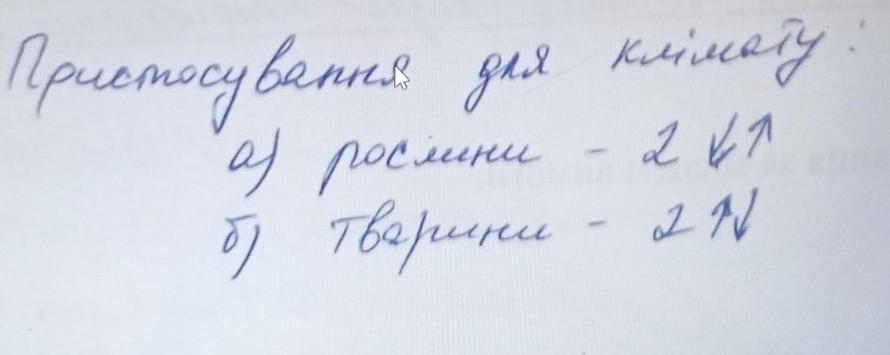 Пристосування для клімату:
а) рослини - 2 ↓↑
б) тварини - 2 ↑↓